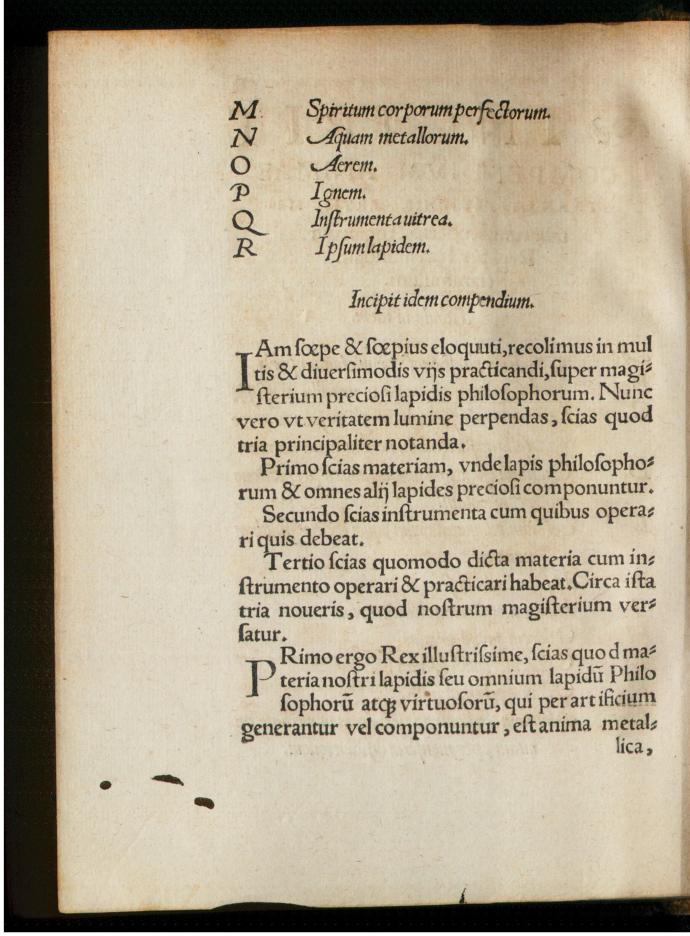 M Spiritum corporum perfectorum.
N Aquam metallorum.
O Aerem.
P Ignem.
Q Instrumenta uitrea.
R Ipsum lapidem.
Incipit idem compendium.
IAm sœpe & sœpius eloquuti, recolimus in mul
tis & diuersimodis vijs practicandi, super magi⸗
sterium preciosi lapidis philosophorum. Nunc
vero vt veritatem lumine perpendas, scias quod
tria principaliter notanda.
Primo scias materiam, vnde lapis philosopho⸗
rum & omnes alij lapides preciosi componuntur.
Secundo scias instrumenta cum quibus opera⸗
ri quis debeat.
Tertio scias quomodo dicta materia cum in⸗
strumento operari & practicari habeat. Circa ista
tria noueris, quod nostrum magisterium ver⸗
satur.
PRimo ergo Rex illustrissime, scias quod ma⸗
teria nostri lapidis seu omnium lapidū Philo
sophorū atq; virtuosorū, qui per artificium
generantur vel componuntur, est anima metal⸗
lica,